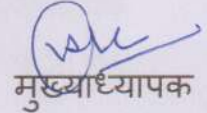 मुख्याध्यापक